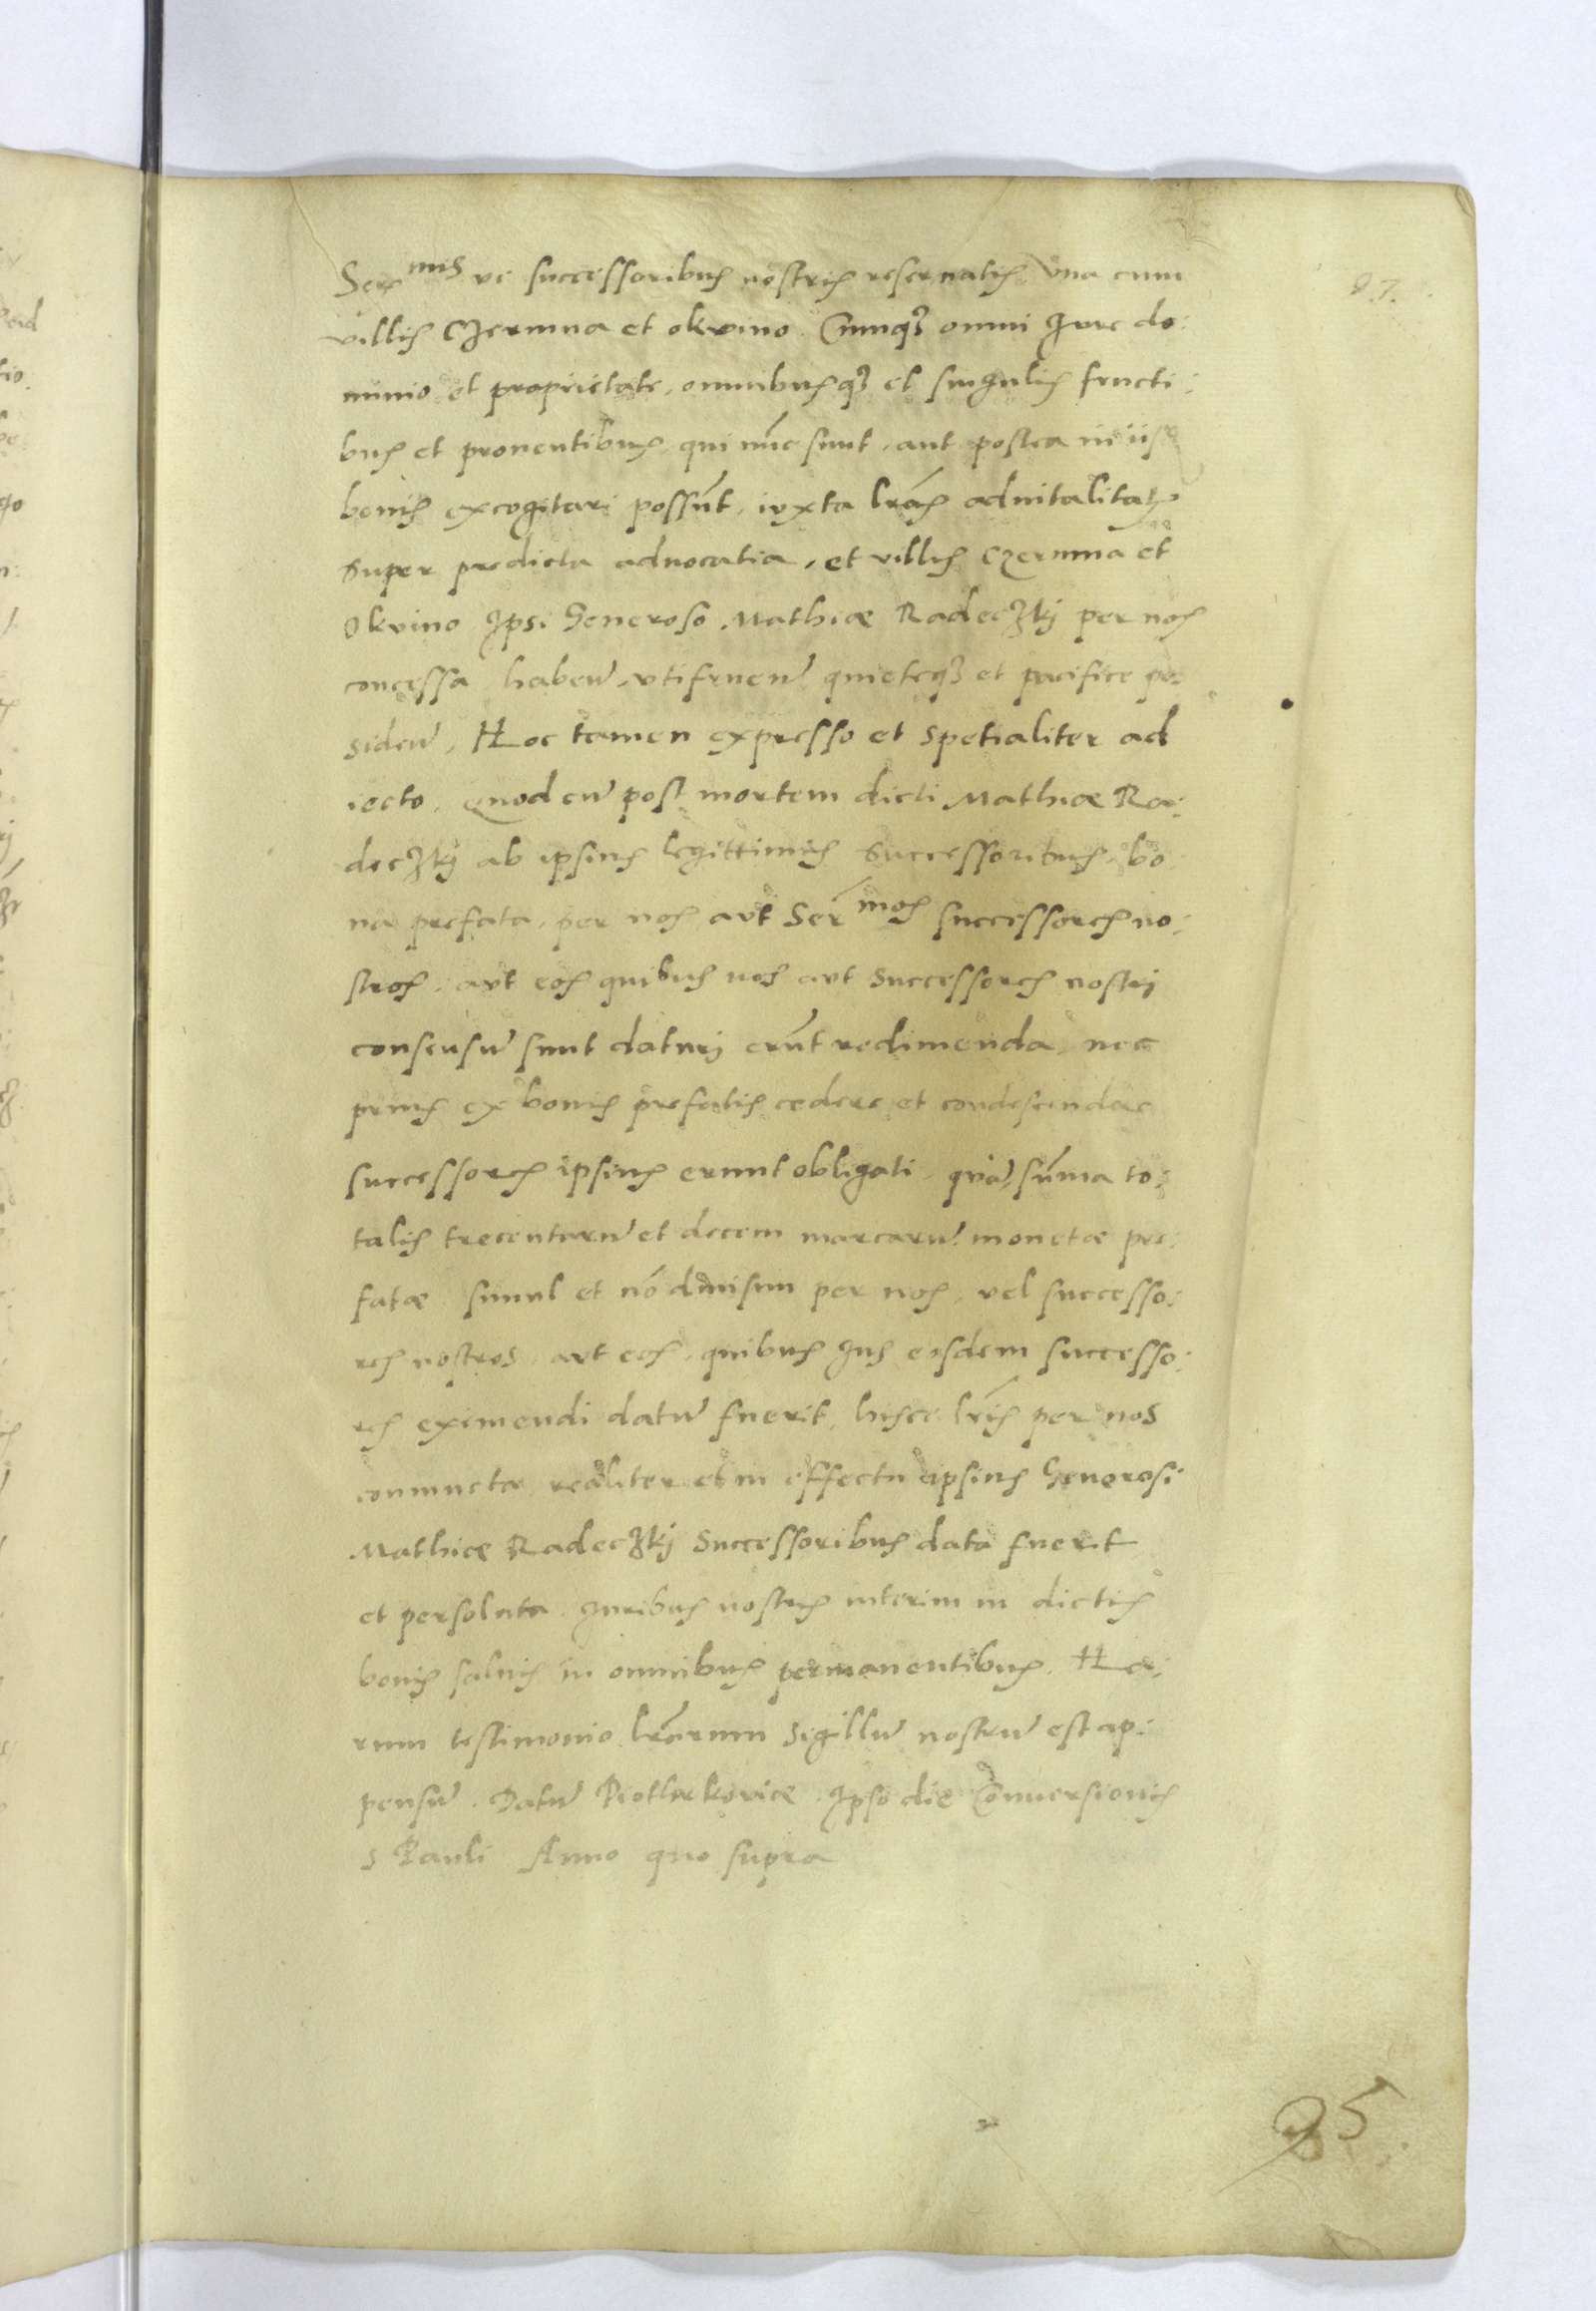 Ser mis ve successoribus nostris reservatis una cum
villis Czermna et Okvino. Cumq3 omni Jure do:
minio et proprietate, omnibusq3 et singulis fructi:
bus et proventibus, qui nūc sunt, aut postea in iis
bonis excogitari possūt, iuxta lrās advitalitatis
super predicta advocatia, et villis Czermna et
Okvino Ipsi Generoso Mathiæ Radeczkj per nos
concessa habenđ, utifruenđ quieteq3 et pacifice po:
sidenđ, Hoc tamen expresso et spetialiter ad
iecto, Quod cū post mortem dicti Mathiæ Ra:
deczkj ab ipsius legittimis successoribus, bo
na prefata, per nos aut Ser mos successores no:
stros, aut eos quibus nos aut successores nostrj
consensū sunt daturj erūt redimenda, nec
prius ex bonis prefatis cedere et condescendere
successores ipsius erunt obligati, quā sūma to:
talis trecentarū et decem marcarū monetæ pre:
fatæ simul et nō divisim per nos, vel successo:
res nostros, aut eos, quibus Jus eisdem successo:
res eximendi datū fuerit, hisce lris per nos
coniuncta, realiter et in effectu ipsius Generosi
Mathiæ Radeczkj Successoribus data fuerit
et persoluta. Juribus nostris interim in dictis
bonis salvis in omnibus permanentibus. Ha:
rum testimonio lrārum sigillū nostrū est ap:
pensū. Datū Piotrkoviæ. Ipso die Conversionis
S Pauli Anno quo supra
95